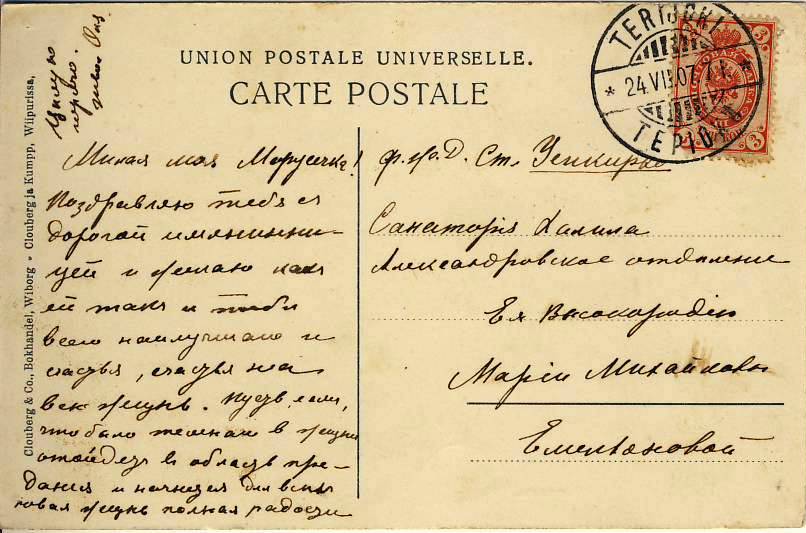 UNION POSTALE UNIVERSELLE.
CARTE POSTALE
TERIJOKI
* 24.VII.07. *
3
3
Clouberg & Co., Bokhandel, Wiborg - Clouberg ja Kumpp, Wiipurissa,
Милая моя Марусечка!
Поздравляю тебя съ
дорогой имянинни-
цей и желаю какъ
ей такъ и тебѣ
всего наилучшаго и
счастья, счастья на
всю жизнь. Пусть, если,
что было темнаго в жизни
отойдетъ в область пре-
данія и начнется для васъ
новая жизнь полная радости
Цѣлую
ф. жр. Д. Ст. Уськирко
Санаторія Халила
Александровское отдѣленіе
Ея Высокородію
Маріи Михайловнѣ
Емельяновой